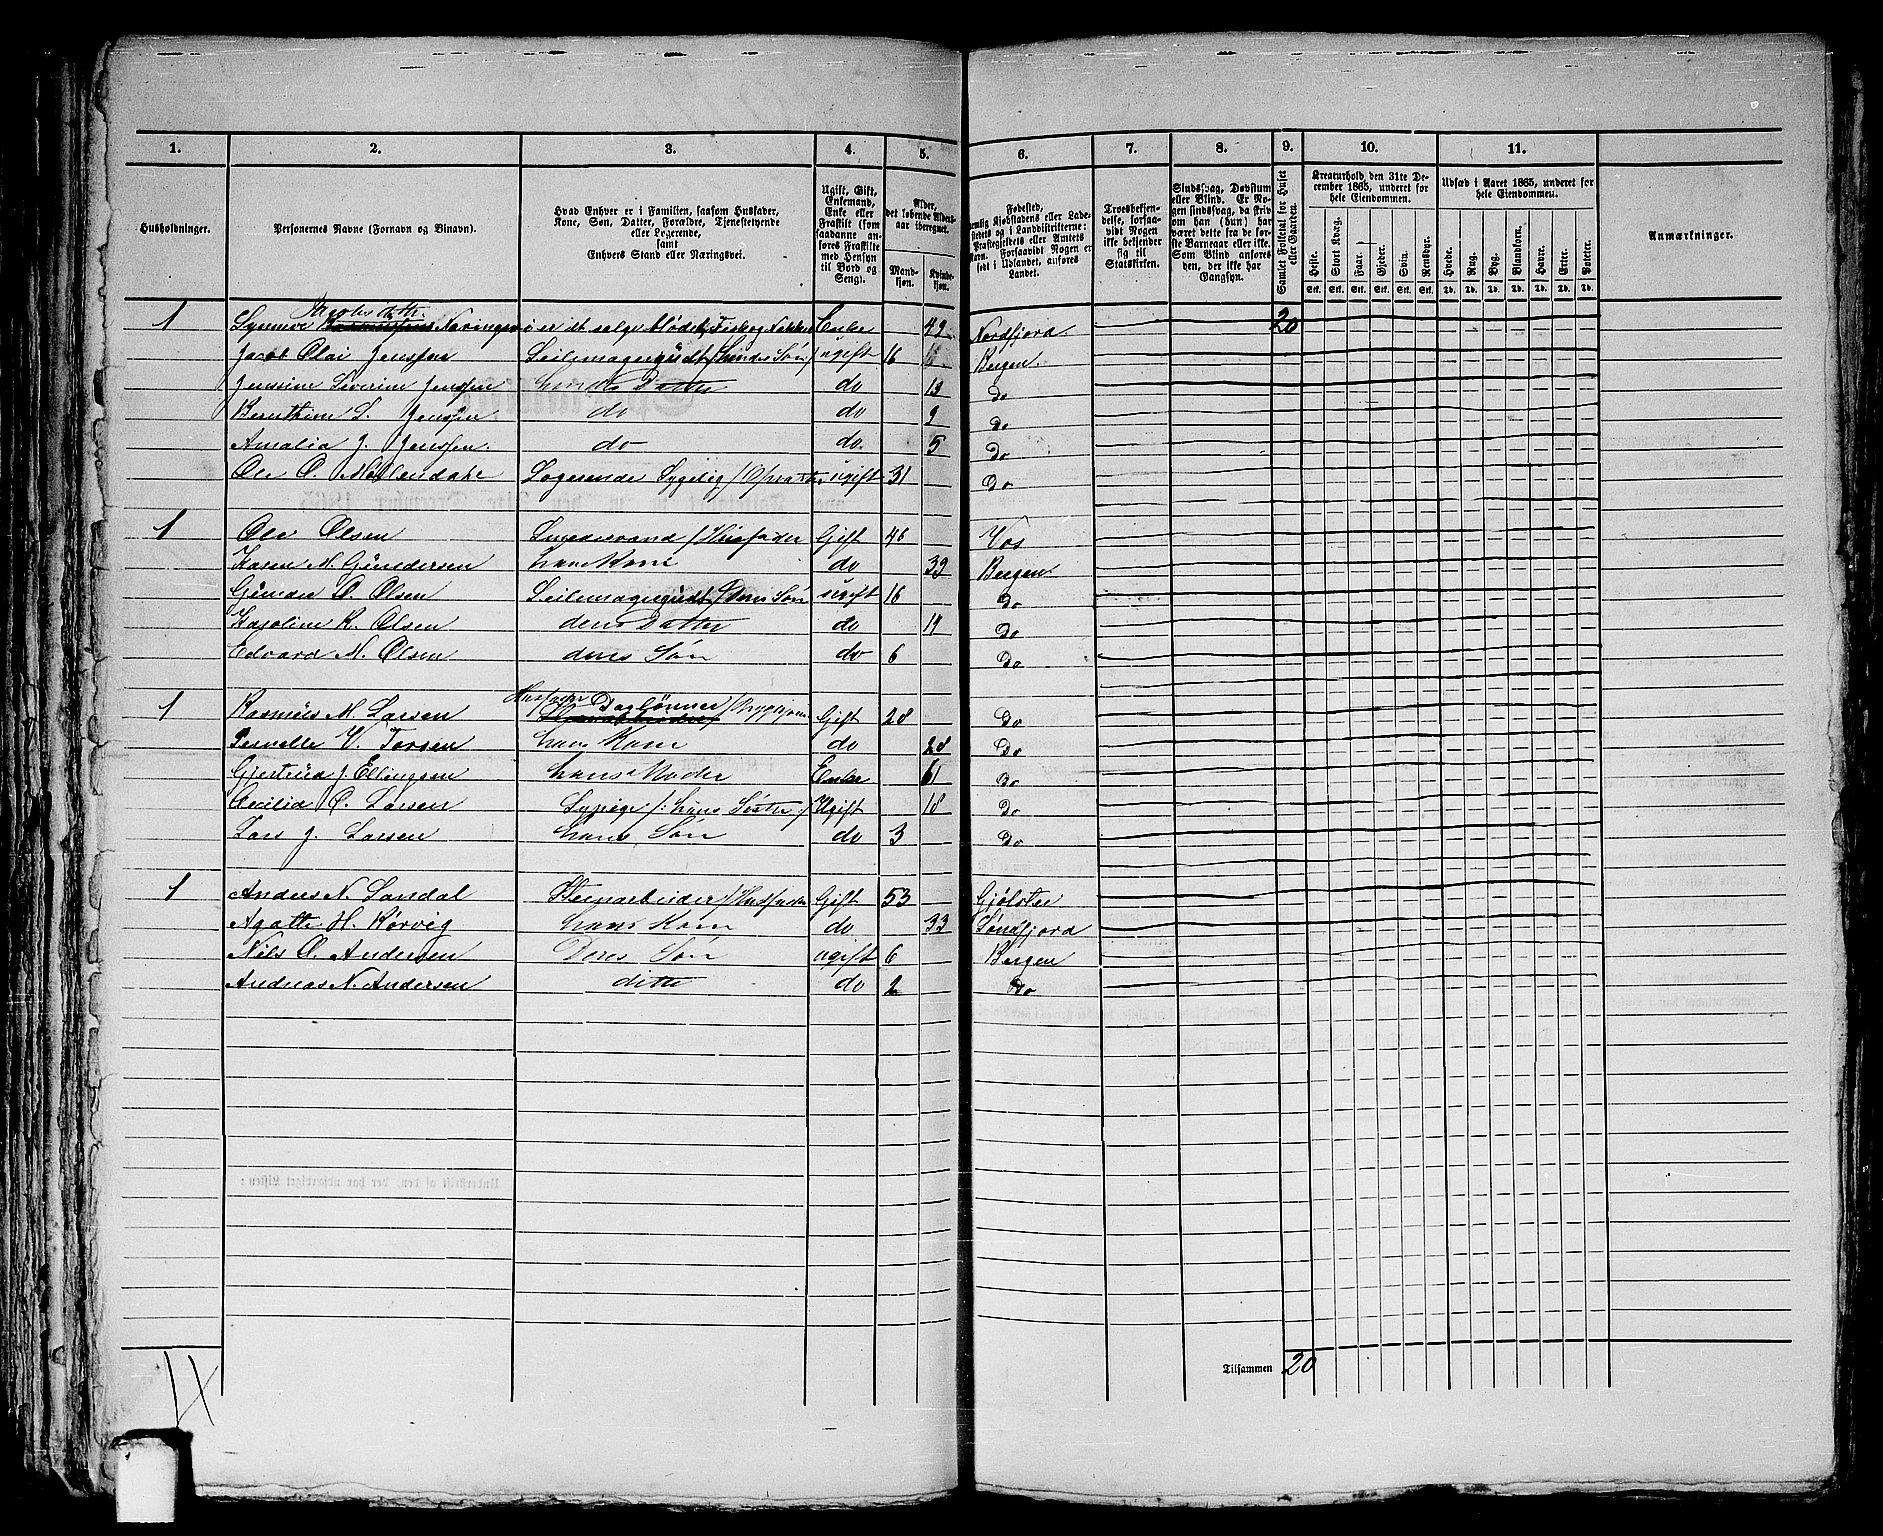 1. 2. 3. 4. 5. 6. 7. 8. 9. 10. 11.
Husholdninger.
Personernes Navne (Fornavn og Binavn).
Hvad Enhver er i Familien, saasom Husfader, Kone, Søn, Datter, Forældre, Tjenestetyende eller Logerende, samt Enhvers Stand eller Næringsvei.
Ugift, Gift, Enkemand, Enke eller Fraskilt (som saadanne anføres Fraskilte med Hensyn til Bord og Seng).
Alder, det løbende Aldersaar iberegnet.
Mandkjøn. Kvindekjøn.
Fødested, nemlig Kjøbstadens eller Ladestedets og i Landdistrikterne: Præstegjeldets eller Amtets Navn. Forsaavidt Nogen er født i Udlandet, anføres Landet.
Troesbekjendelse, forsaavidt Nogen ikke bekjender sig til Statskirken.
Sindssvag, Døvstum eller Blind. Er Nogen sindssvag, da skrives om han (hun) har været dette fra de første Barneaar eller ikke. Som Blind anføres den, der ikke har Gangsyn.
Samlet Folketal for Huset eller Gaarden.
Kreaturhold, den 31te December 1865, underet for hele Eiendommen.
Heste. Stort Kvæg. Faar. Gjeder. Svin. Rensdyr.
Stk. Stk. Stk. Stk. Stk. Stk.
Udsæd i Aaret 1865, underet for hele Eiendommen.
Hvede. Rug. Byg. Blandkorn. Havre. Erter. Poteter.
Td. Td. Td. Td. Td. Td. Td.
Anmærkninger.
Jacobsdatter
1 Synneve Rasmussens Næringsvei er at sælge Fisk og Enke 49 Nordfjord 20
Jacob Olai Jenssen Seilmagergudt /hendes Søn/ ugift 16 Bergen.
Jenssine Severine Jenssen hendes Datter do 13 Do
Bernthine S. Jenssen do do 9 Do
Amalia J. Jenssen. do do. 5 Do
Ole O. Logerende Sygelig ugift 31 Do
1 Ole Olsen Smedesvend /Husfader Gift 46 Vos
Karen M. Gundersen hans Kone do 39 Bergen
Gunder O. Olsen Seilmagergudt /Deres Søn ugift 16 Do
Karoline K. Olsen deres Datter do 14 Do
Edvard M. Olsen deres Søn do 6 Do
Husfader Daglønner
1 Rasmus M. Larsen Gift 28 Do
Pernelle V. Torsen hans Kone do 28 Do
Gjertrud J. Ellingsen hans Moder Enke 61 Do
Cecilia O. Larsen Sypige /: hans Søster / Ugift 18 Do
Lars J. Larsen hans Søn do 3 Do
1 Anders N. Sandal Steinarbeider /Husfader Gift 53 Gjølster
Agatte H. Rørvig hans Kone do 33 Søndfjord
Nils O. Andersen Deres Søn ugift 6 Bergen
Andreas N. Andersen ditto do 2 Do
Tilsammen 20